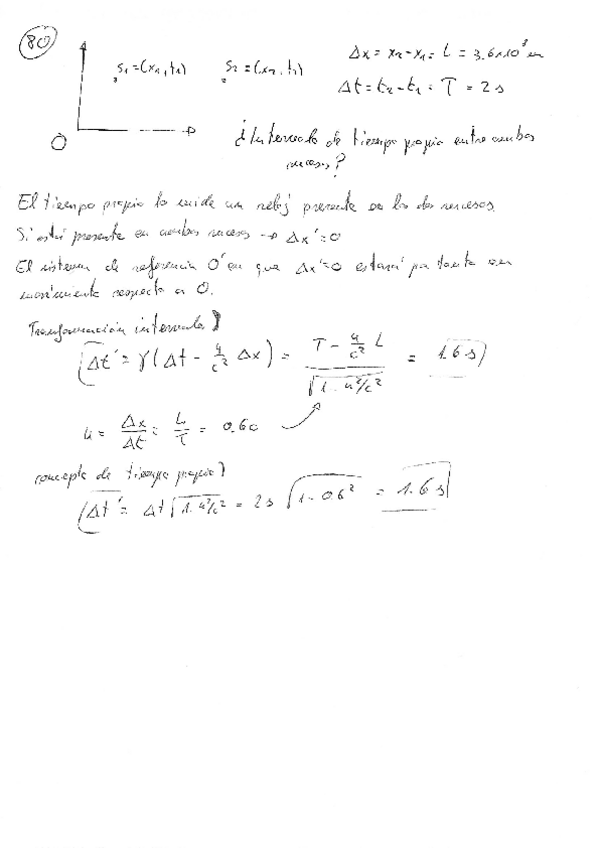 80
S₁=(x₁,t₁) S₂=(x₂,t₂) Δx = x₂-x₁ = L = 3.6x10⁸ m
Δt = t₂-t₁ = T = 2 s
O
¿Intervalo de tiempo propio entre ambos
sucesos?
El tiempo propio lo mide un reloj presente en los dos sucesos.
Si está presente en ambos sucesos → Δx'=0
El sistema de referencia O' en que Δx'=0 estará por tanto en
movimiento respecto a O.
Transformación intervalo)
Δt' = γ(Δt - u/c² Δx) = (T - u/c² L) / √(1-u²/c²) = 1.6 s
u = Δx/Δt = L/T = 0.60
concepto de tiempo propio)
Δt' = Δt √(1-u²/c²) = 2s √(1-0.6²) = 1.6 s